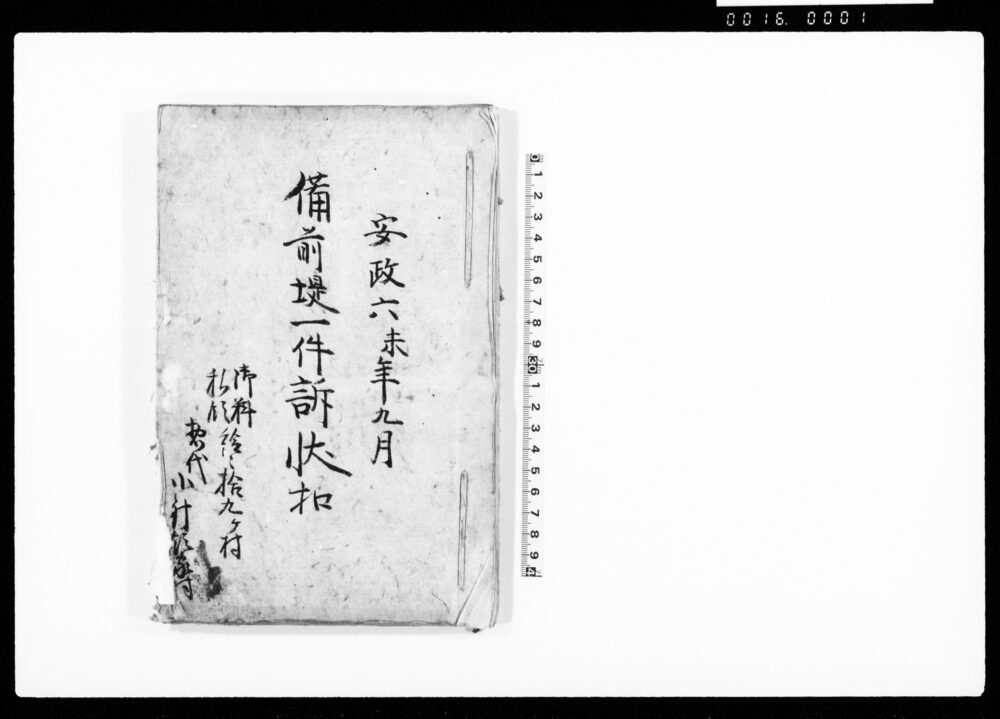 0016. 0001
安政六未年九月
備前堤一件訴状扣
御料
私領
拾九ヶ村
惣代
小針領家村
0 1 2 3 4 5 6 7 8 9 30 1 2 3 4 5 6 7 8 9 4